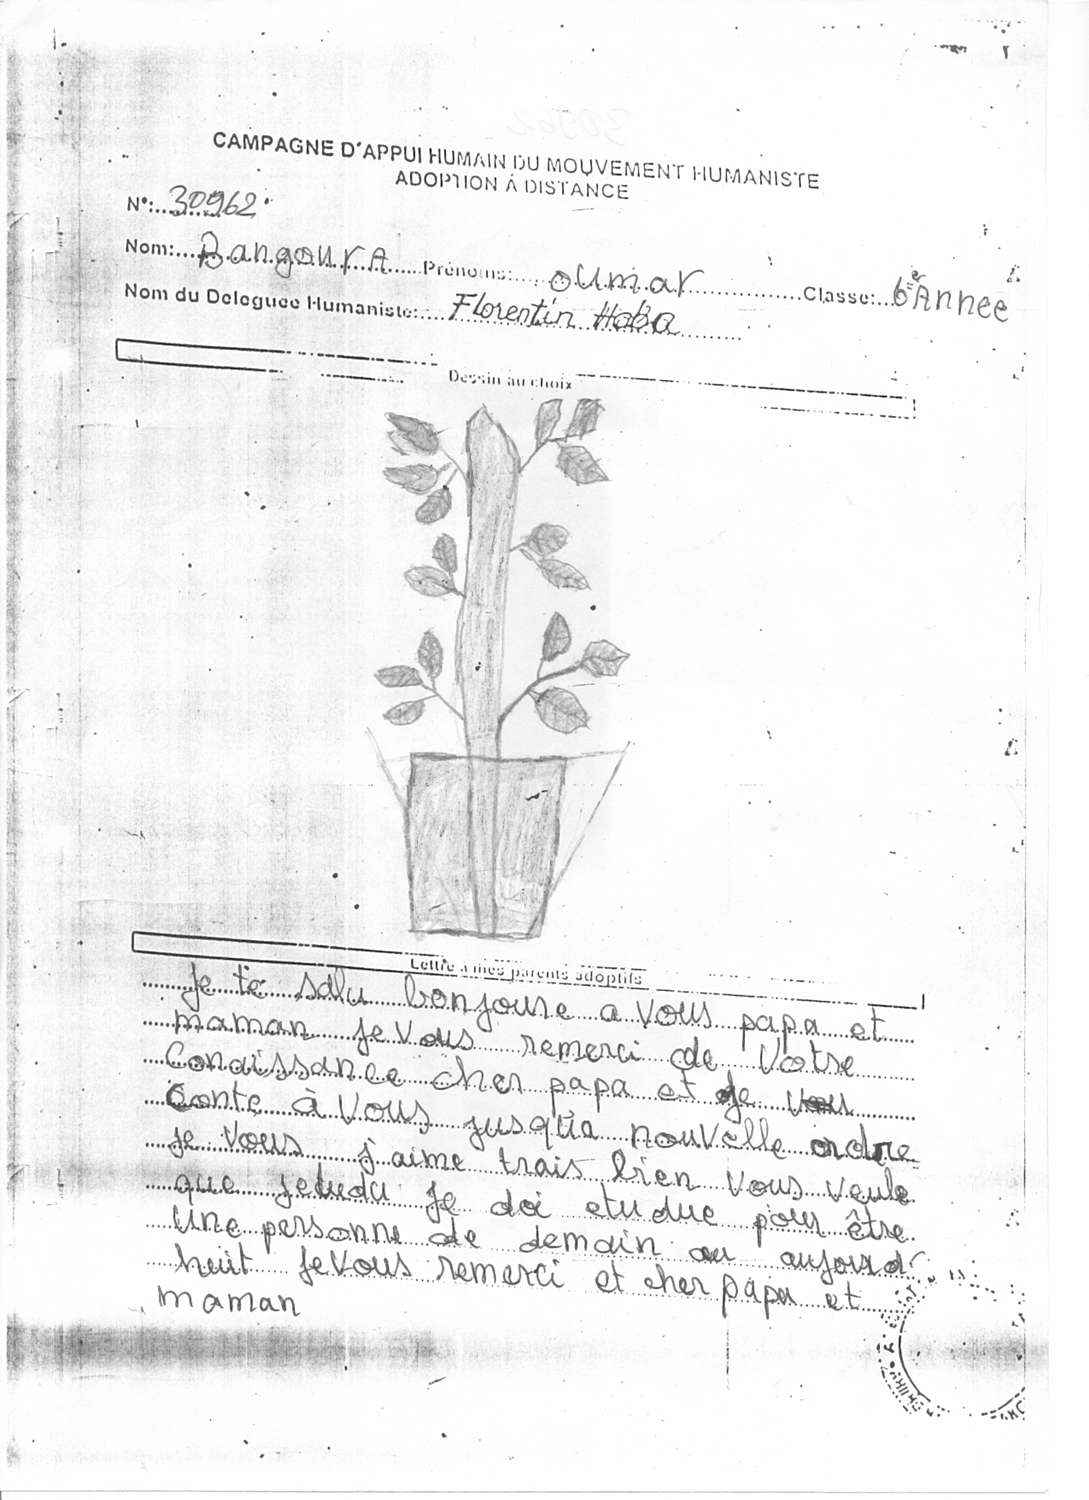 CAMPAGNE D'APPUI HUMAIN DU MOUVEMENT HUMANISTE
ADOPTION À DISTANCE
N°: 30962
Nom: Bangoura Prénoms: oumar Classe: 6er Annee
Nom du Deleguee Humaniste: Florentin Haba
Dessin au choix
Lettre a mes parents adoptifs
je te salu bonjoure a vous papa et
maman je vous remerci de votre
Conaissance cher papa et je
conte à vous jusqu'a nouvelle ordre
je vous j'aime trais bien vous veule
que jetudu je doi etudue pour être
une personne de demain ou aujourd'
huit je vous remerci et cher papa et
maman